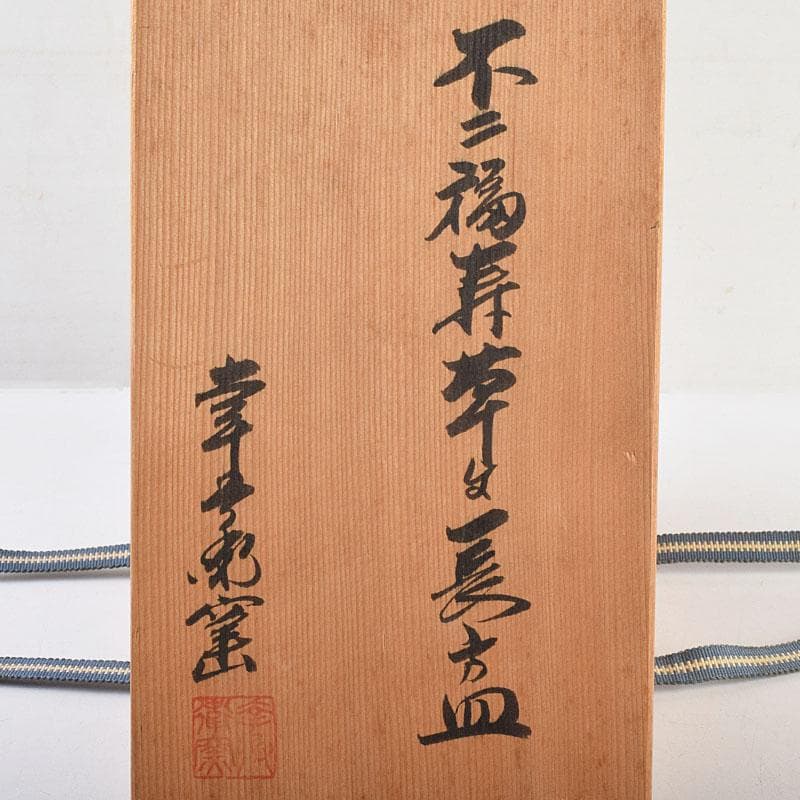 不二福寿草文長方皿
幸兵衛窯